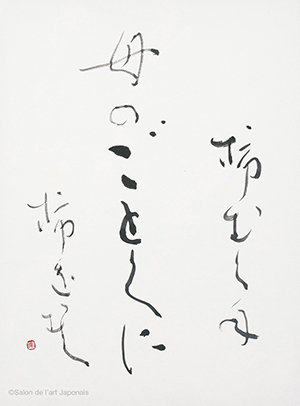 柿むく手
母のごとくに
柿をむく
©Salon de l'art Japonais